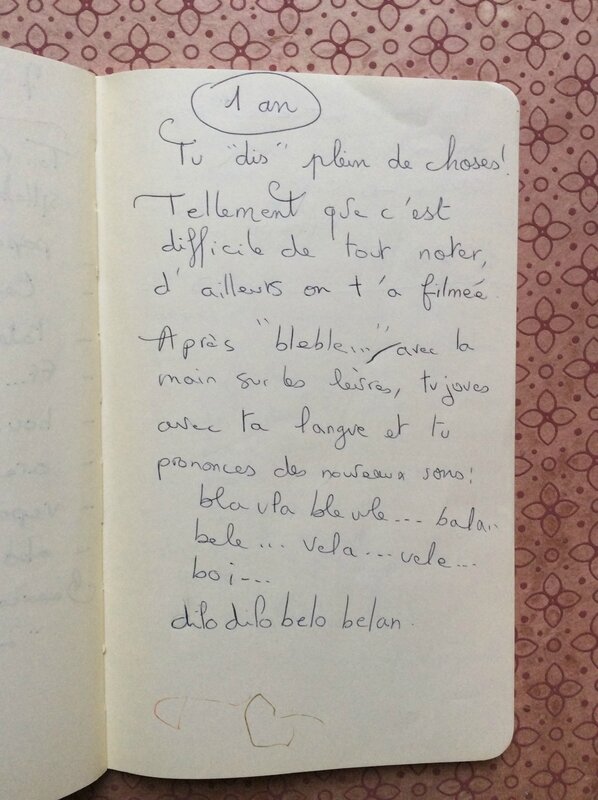 1 an
Tu "dis" plein de choses!
Tellement que c'est
difficile de tout noter,
d'ailleurs on t'a filmée
Après "bleble..." avec la
main sur les lèvres, tu joues
avec ta langue et tu
prononces des nouveaux sons:
bla vla ble vle... bala..
bele... vela... vele...
boi...
dilo dilo belo belan.